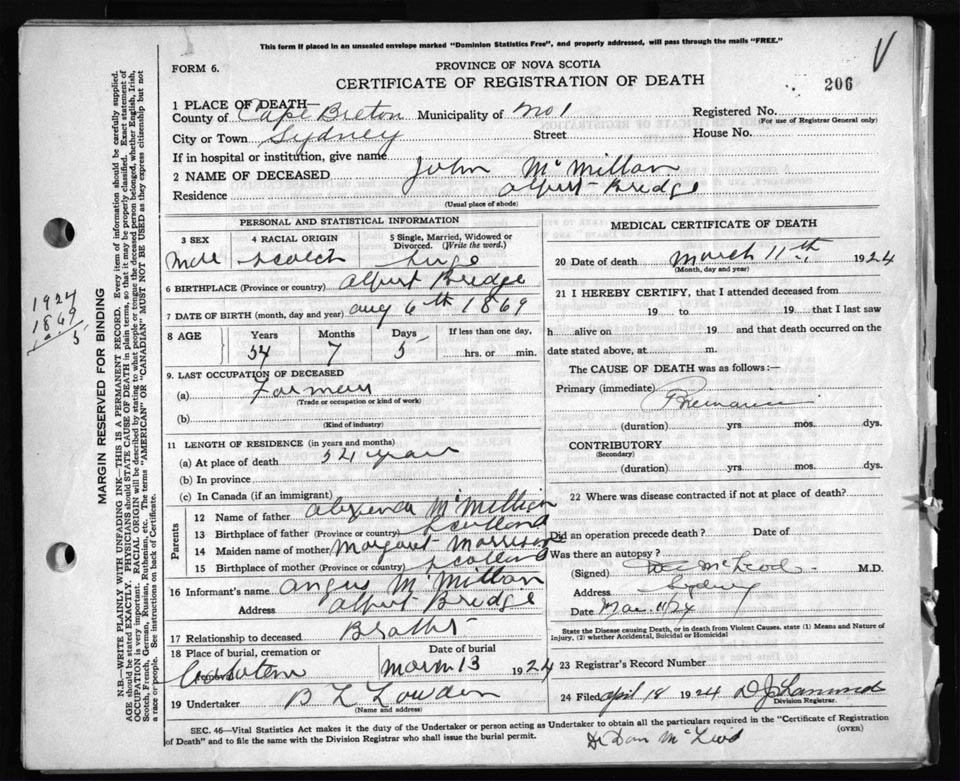 This form if placed in an unsealed envelope marked "Dominion Statistics Free", and properly addressed, will pass through the mails "FREE."
V
FORM 6.
PROVINCE OF NOVA SCOTIA
CERTIFICATE OF REGISTRATION OF DEATH
206
1 PLACE OF DEATH—
County of Cape Breton Municipality of No 1 Registered No.
(For use of Registrar General only)
City or Town Sydney Street House No.
If in hospital or institution, give name
2 NAME OF DECEASED John McMillan
Residence Albert Bridge
(Usual place of abode)
PERSONAL AND STATISTICAL INFORMATION
3 SEX 4 RACIAL ORIGIN 5 Single, Married, Widowed or Divorced. (Write the word.)
Male Scotch
6 BIRTHPLACE (Province or country) Albert Bridge
7 DATE OF BIRTH (month, day and year) Aug 6th 1869
8 AGE Years Months Days If less than one day,
54 7 5 hrs. or min.
9. LAST OCCUPATION OF DECEASED
(a) Farmer
(Trade or occupation or kind of work)
(b)
(Kind of industry)
11 LENGTH OF RESIDENCE (in years and months)
(a) At place of death 54 years
(b) In province
(c) In Canada (if an immigrant)
Parents
12 Name of father McMillian
13 Birthplace of father (Province or country) Scotland
14 Maiden name of mother Margaret Morrison
15 Birthplace of mother (Province or country) Scotland
16 Informant's name Angus McMillan
Address Albert Bridge
17 Relationship to deceased Brother
18 Place of burial, cremation or Date of burial
March 13 1924
19 Undertaker B L Lowden
(Name and address)
MEDICAL CERTIFICATE OF DEATH
20 Date of death March 11th 1924
(Month, day and year)
21 I HEREBY CERTIFY, that I attended deceased from
19 to 19 that I last saw
h alive on 19 and that death occurred on the
date stated above, at m.
The CAUSE OF DEATH was as follows:—
Primary (immediate)
(duration) yrs mos. dys.
CONTRIBUTORY
(Secondary)
(duration) yrs. mos. dys.
22 Where was disease contracted if not at place of death?
Did an operation precede death? Date of
Was there an autopsy?
(Signed) McLeod M.D.
Address Sydney
Date Mar 11/24
State the Disease causing Death, or in death from Violent Causes, state (1) Means and Nature of
Injury, (2) whether Accidental, Suicidal or Homicidal
23 Registrar's Record Number
24 Filed April 18 1924 D J
Division Registrar.
SEC. 46—Vital Statistics Act makes it the duty of the Undertaker or person acting as Undertaker to obtain all the particulars required in the "Certificate of Registration
of Death" and to file the same with the Division Registrar who shall issue the burial permit.
(OVER)
Dr Dan McLeod
1924
1869
MARGIN RESERVED FOR BINDING
N.B.—WRITE PLAINLY WITH UNFADING INK—THIS IS A PERMANENT RECORD. Every item of information should be carefully supplied.
AGE should be stated EXACTLY. PHYSICIANS should STATE CAUSE OF DEATH in plain terms, so that it may be properly classified. Exact statement of
OCCUPATION is very important. RACIAL ORIGIN will be described by stating to what people or tongue the deceased person belonged, whether English, Irish,
Scotch, French, German, Russian, Ruthenian, etc. The terms "AMERICAN" OR "CANADIAN" MUST NOT BE USED as they express citizenship but not
a race or people. See instructions on back of Certificate.